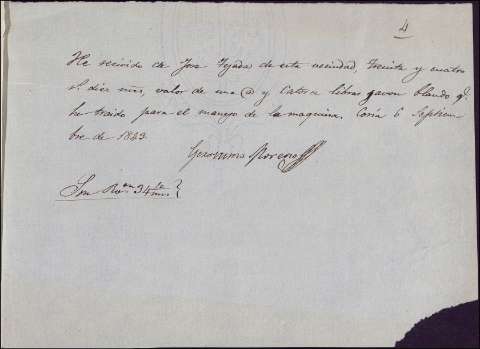 4
He recivido de Jose Tejada de esta vecindad, treinta y cuatro
rs. diez mrs, valor de una @ y catorce libras javon blando q.
he traido para el manejo de la maquina. Coria 6 Septiem
bre de 1843.
Geronimo Moreno
Son Rs. vn 34